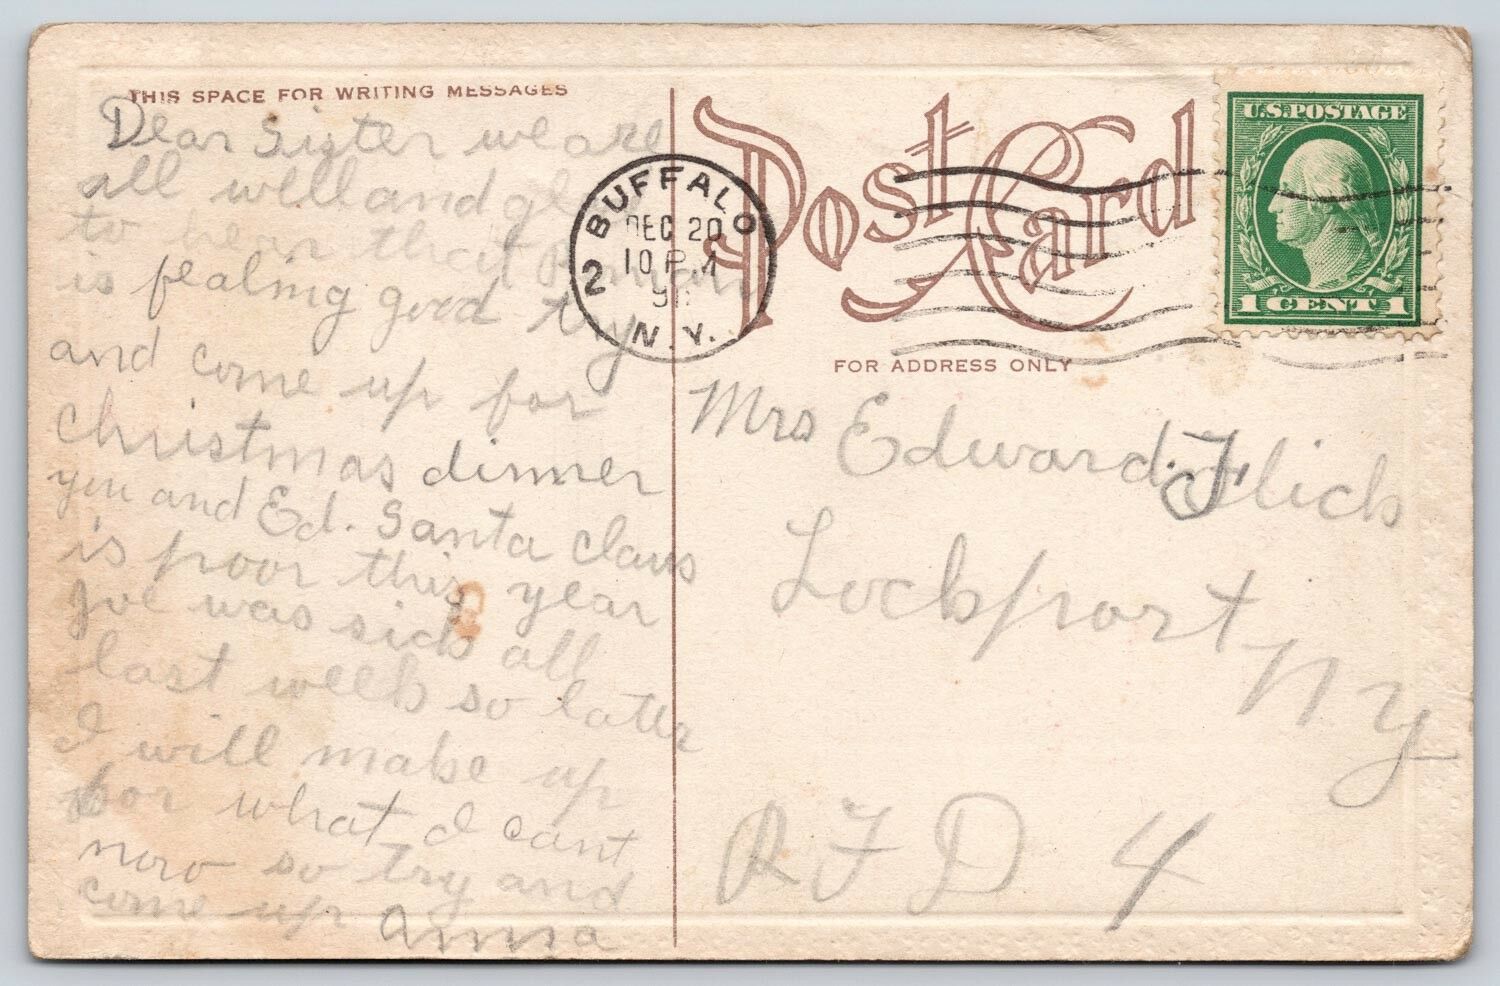 THIS SPACE FOR WRITING MESSAGES
Dear Sister we are
all well and
to hear that
is fealing good try
and come up for
christmas dinner
you and Ed. Santa claus
is poor this year
Joe was sick all
last week so later
I will make up
for what I cant
now so try and
come up Anna
Post Card
BUFFALO
DEC 20
10 P M
2
N.Y.
U.S. POSTAGE
1 CENT 1
FOR ADDRESS ONLY
Mrs Edward Flick
Lockport
N Y
R F D 4